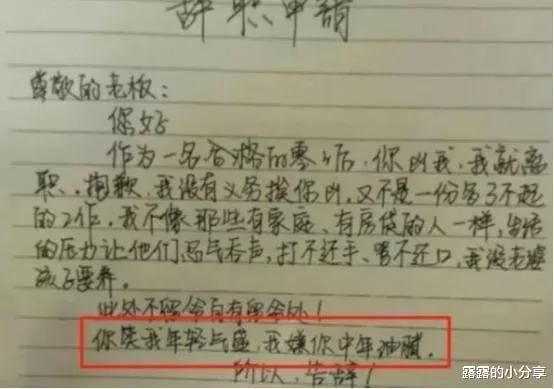 辞职申请
尊敬的老板：
你好
作为一名合格的零0后，你凶我，我就离
职。抱歉，我没有义务挨你凶，又不是一份多了不起
的工作。我不像那些有家庭、有房贷的人一样，生活
的压力让他们忍气吞声，打不还手、骂不还口，我没老婆
孩子要养。
此处不留爷自有留爷处！
你笑我年轻气盛，我嫌你中年油腻。
所以，告辞！
露露的小分享